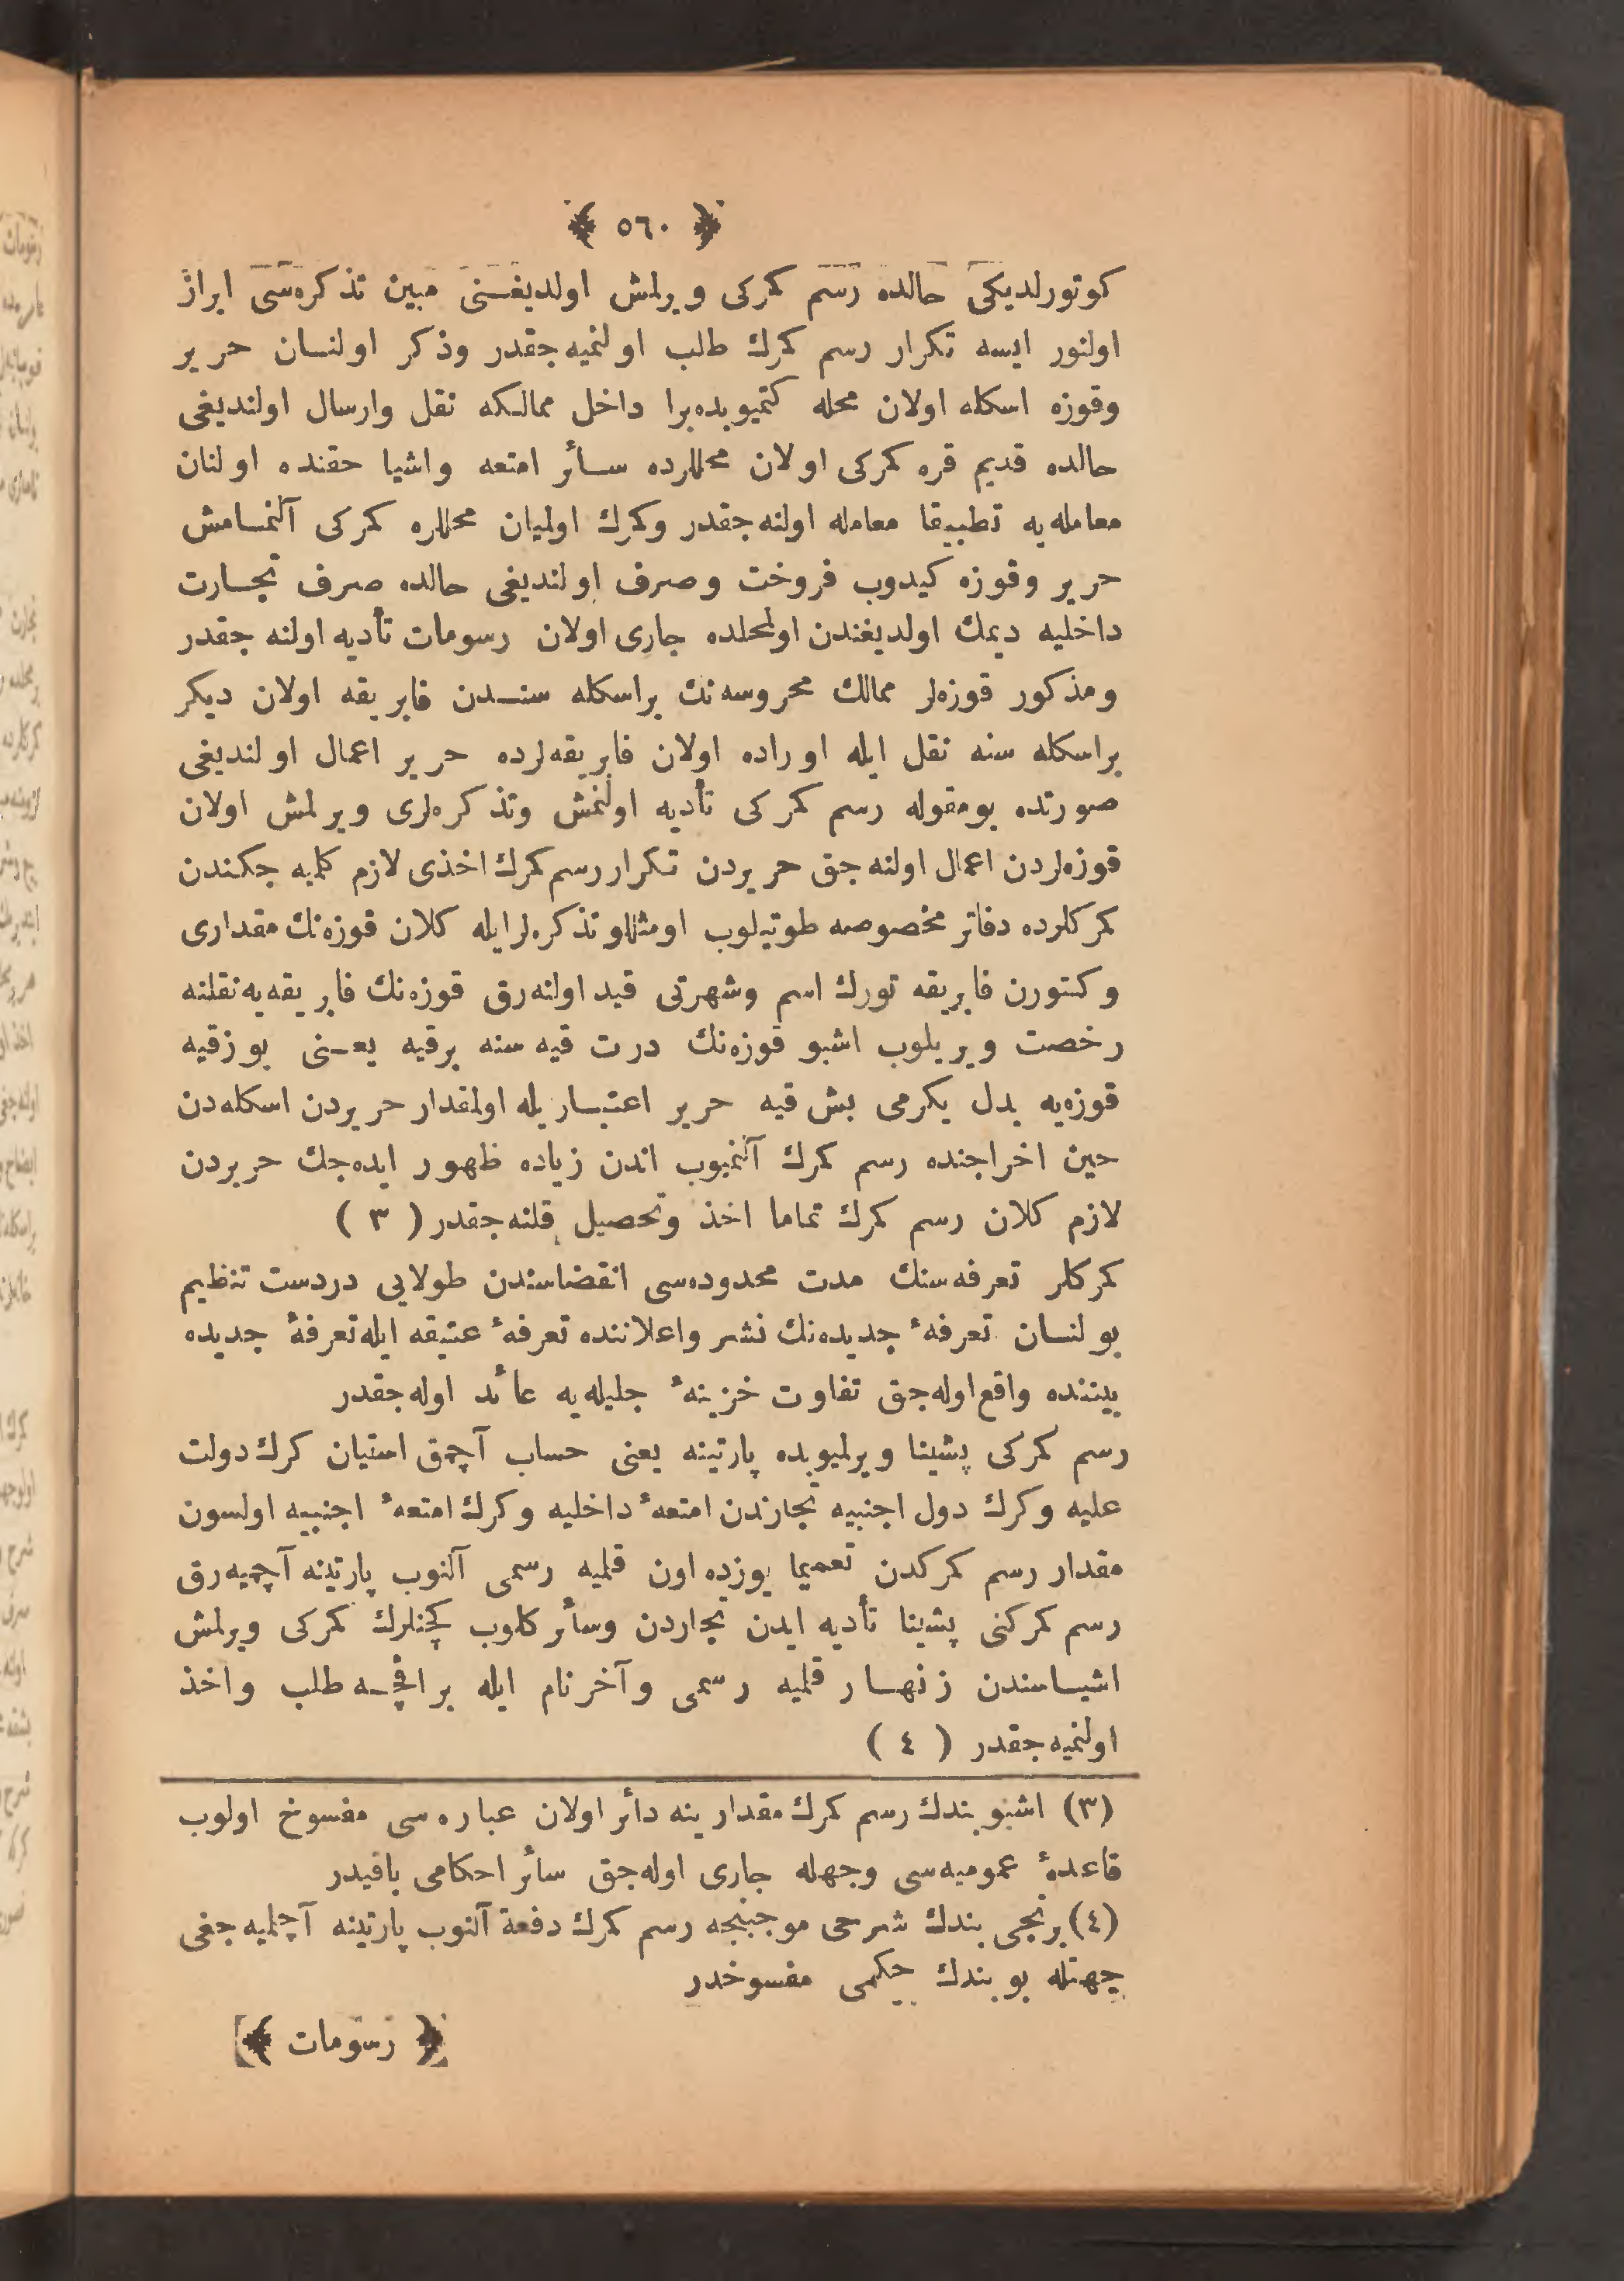 ﴿ ٥٦٠ ﴾
كوتورلديكی حالده رسم كمركی ويرلمش اولديغـنی مبين تذكره‌سی ابراز
اولنور ايسه تكرار رسم كمرك طلب اولنميه‌جقدر وذكر اولنسان حرير
وقوزه اسكله اولان محله كتميوبده‌برا داخل ممالـكه نقل وارسال اولنديغی
حالده قديم قره كمركی اولان محللرده سـائر امتعه واشيا حقنده اولنان
معامله‌يه تطبيقا معامله اولنه‌جقدر وكمرك اوليان محللره كمركی آلنمـامش
حرير وقوزه كيدوب فروخت وصرف اولنديغی حالده صرف تجـارت
داخليه ديمك اولديغندن اولمحلده جاری اولان رسومات تأديه اولنه جقدر
ومذكور قوزه‌لر ممالك محروسه‌نك براسكله سنـدن فابريقه اولان ديكر
براسكله سنه نقل ايله اوراده اولان فابريقه‌لرده حرير اعمال اولنديغی
صورتده بومقوله رسم كمركی تأديه اولنمش وتذكره‌لری ويرلمش اولان
قوزه‌لردن اعمال اولنه‌جق حريردن تكرار رسم كمرك اخذی لازم كلميه جكندن
كمركلرده دفاتر مخصوصه طوتيلوب اومثللو تذكره‌لرايله كلان قوزه‌نك مقداری
وكتورن فابريقه تورك اسم وشهرتی قيد اولنه‌رق قوزه‌نك فابريقه‌يه‌نقلنه
رخصت ويريلوب اشبو قوزه‌نك درت قيه سنه برقيه يعـنی يوزقيه
قوزه‌يه بدل يكرمی بش قيه حرير اعتبـاريله اولمقدار حريردن اسكله‌دن
حين اخراجنده رسم كمرك آلنميوب اندن زياده ظهور ايده‌جك حريردن
لازم كلان رسم كمرك تماما اخذ وتحصيل قلنه‌جقدر ( ٣ )
كمركلر تعرفه‌سنك مدت محدوده‌سی انقضاسندن طولايی دردست تنظيم
بولنسان تعرفهٔ جديده‌نك نشر واعلاننده تعرفهٔ عتيقه ايله تعرفهٔ جديده
بيننده واقع‌اوله‌جق تفاوت خزينهٔ جليله‌يه عائد اوله‌جقدر
رسم كمركی پشينا ويرلميوبده پارتينه يعنی حساب آچمق استيان كرك دولت
عليه وكرك دول اجنبيه تجارندن امتعهٔ داخليه وكرك امتعهٔ اجنبيه اولسون
مقدار رسم كمركدن تعميما يوزده اون قلميه رسمی آلنوب پارتينه آچميه‌رق
رسم كمركنی پشينا تأديه ايدن تجاردن وسائر كلوب كچنلرك كمركی ويرلمش
اشيـاسندن زنهـار قلميه رسمی وآخرنام ايله براقچـه طلب واخذ
اولنميه‌جقدر ( ٤ )
(٣) اشبو بندك رسم كمرك مقدارينه دائر اولان عباره‌سی مفسوخ اولوب
قاعدهٔ عموميه‌سی وجهله جاری اوله‌جق سائر احكامی باقيدر
(٤) برنجی بندك شرحی موجبنجه رسم كمرك دفعة آلنوب پارتينه آچلميه‌جغی
جهتله بو بندك حكمی مفسوخدر
﴿ رسومات ﴾